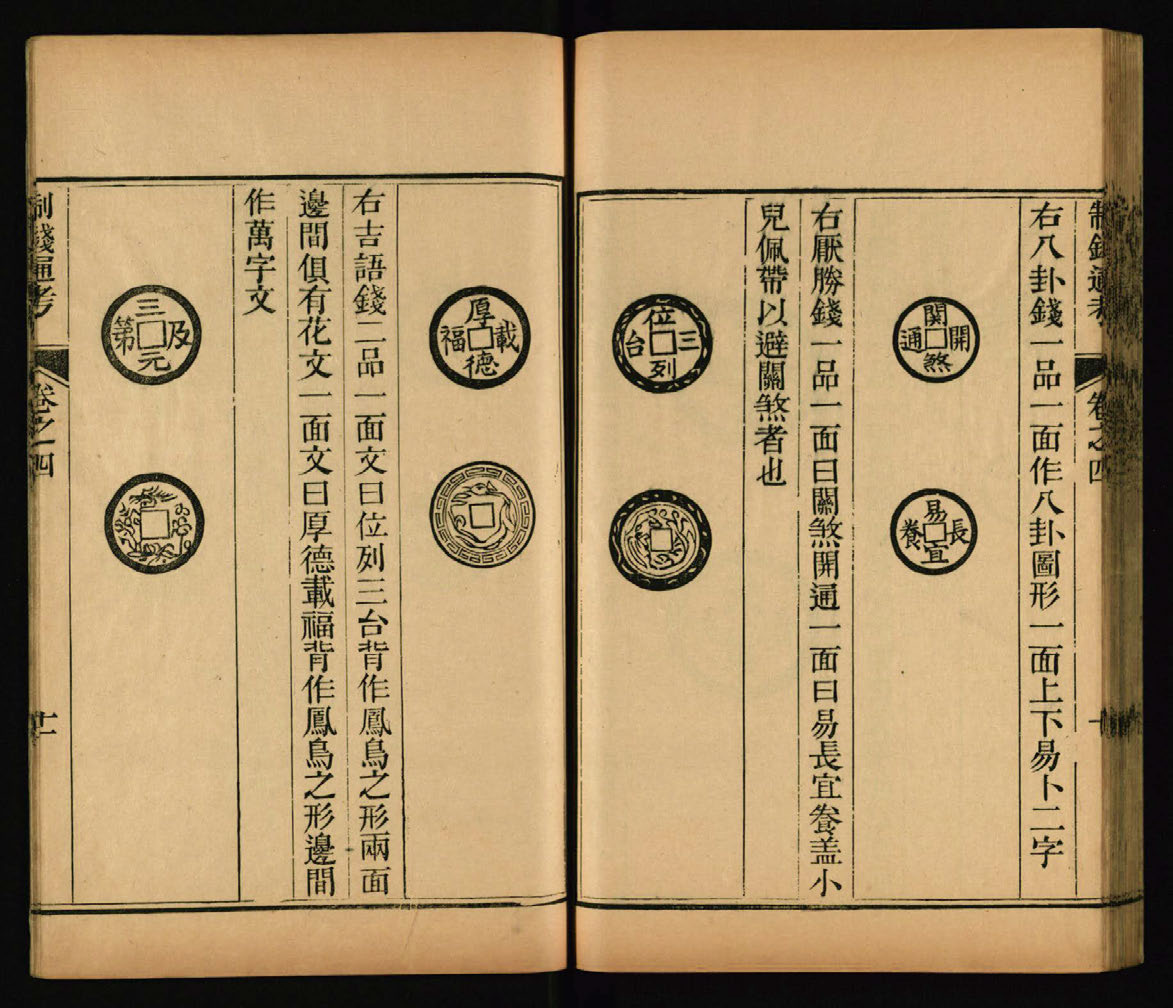 制錢通考
卷之四
右八卦錢一品一面作八卦圖形一面上下易卜二字
関煞開通
易宜長養
右厭勝錢一品一面曰關煞開通一面曰易長宜養盖小
兒佩帶以避關煞者也
位列三台
厚德載福
右吉語錢二品一面文曰位列三台背作鳳鳥之形兩面
邊間俱有花文一面文曰厚德載福背作鳳鳥之形邊間
作萬字文
三元及第
制錢通考
卷之四
十一